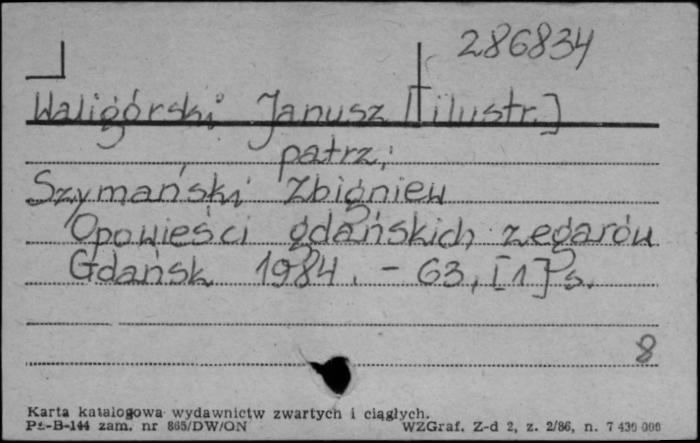 286834
Waligórski Janusz [ilustr.]
patrz:
Szymański Zbigniew
Opowieści gdańskich zegarów
Gdańsk 1984. - 63, [1] s.
8
Karta katalogowa wydawnictw zwartych i ciągłych.
Pź-B-144 zam. nr 865/DW/ON WZGraf. Z-d 2, z. 2/86, n. 7 430 000